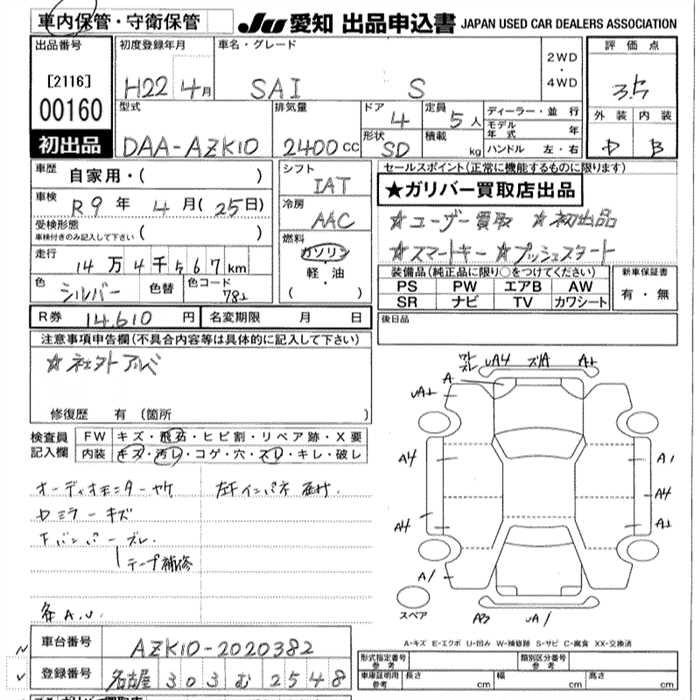 車内保管・守衛保管
JU 愛知 出品申込書 JAPAN USED CAR DEALERS ASSOCIATION
出品番号 初度登録年月 車名・グレード 評価点
[2116] H22 4月 SAI S 2WD・4WD 3.5
00160 型式 排気量 ドア 4 定員 5人 ディーラー・並行 外装 内装
モデル年式 年
初出品 DAA-AZK10 2400cc 形状 SD 積載 kg ハンドル 左・右 D B
車歴 自家用・( )
シフト IAT
セールスポイント(正常に機能するものに限ります)
★ガリバー買取店出品
車検 R9年 4月(25日)
冷房 AAC
☆ユーザー買取 ☆初出品
受検形態 車検付きのみ記入して下さい ( )
燃料 ガソリン
☆スマートキー ☆プッシュスタート
走行 14万4千567km
軽・油
( )
装備品(純正品に限り○をつけてください) 新車保証書
PS PW エアB AW 有・無
SR ナビ TV カワシート
色 シルバー 色替 色コード
R券 14,610円 名変期限 月 日
後日品
注意事項申告欄(不具合内容等は具体的に記入して下さい)
☆社外アルミ
修復歴 有 (箇所 )
検査員記入欄 FW キズ・飛石・ヒビ割・リペア跡・X要
内装 キズ・汚レ・コゲ・穴・スレ・キレ・破レ
オーディオモニターヤケ
ミラーキズ
バンパーズレ
テープ補修
各A.U.
A
A4
A4
A1
A1
A4
スペア
A-キズ E-エクボ U-凹み W-補修跡 S-サビ C-腐食 XX-交換済
車台番号 AZK10-2020382
登録番号 名古屋 303 む 2548
形式指定番号 参考 類別区分番号 参考
車庫証明用 参考 長さ cm 幅 cm 高さ cm